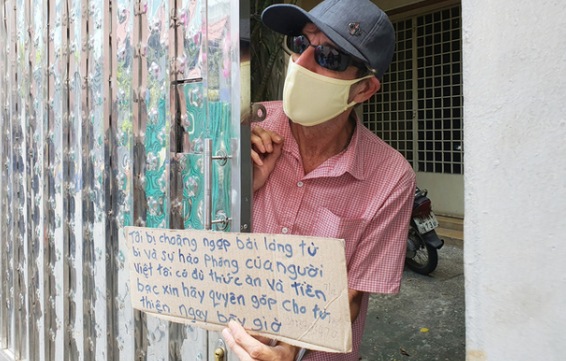 Tôi bị choáng ngợp bởi lòng từ
bi và sự hào phóng của người
Việt tôi có đủ thức ăn và tiền
bạc xin hãy quyên góp cho từ
thiện ngay bây giờ